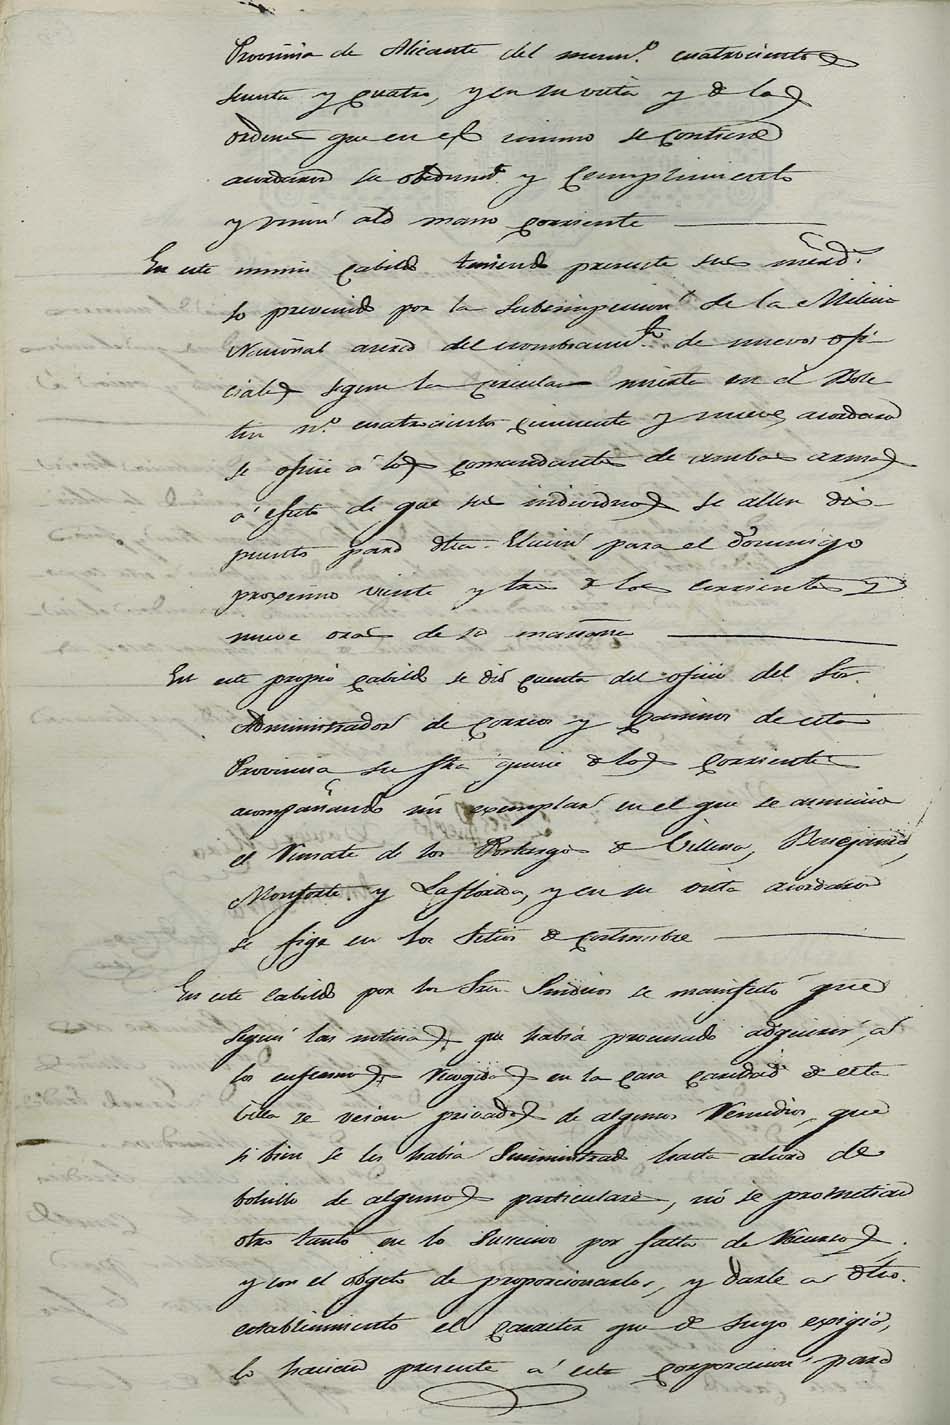 Provincia de Alicante del num.º cuatrocientos
sesenta y cuatro, y en su vista y de las
ordenes que en el mismo se contienen
acordaron su obedecim.to y cumplimiento
y unir al de mano corriente
En este mismo cabildo teniendo presente sus merd.s
lo prevenido por la Subinspeccion de la Milicia
Nacional acerca del nombram.to de nuevos ofi-
ciales segun la circular inserta en el Bole
tin n.º cuatrocientos cincuenta y nueve, acordaron
se oficie á los comandantes de ambas armas
á efecto de que sus individuos se allen dis-
puestos para dha. Eleccion para el domingo
proximo veinte y tres de los corrientes y
nueve oras de la mañana
En este propio cabildo se dió cuenta del oficio del Sor.
Administrador de Correos y caminos de esta
Provincia su fha quince de los corrientes
acompañando un exemplar en el que se anuncia
el Remate de los Portazgos de Villena, Benejama,
Monforte y La florida, y en su vista acordaron
se fige en los Sitios de costumbre
En este Cabildo por los Sres. Sindicos se manifestó que
segun las noticias que habia procurado adquirir, á
los enfermos recogidos en la casa caridad de esta
villa se veian privados de algunos Remedios, que
si bien se les habia Suministrado hasta ahora de
bolsillo de algunos particulares, no se prometian
otro tanto en lo Sucesivo por falta de Recursos
y con el objeto de proporcionarlos, y darle a dho.
establecimiento el caracter que de suyo exigia,
lo hacian presente á esta corporacion para